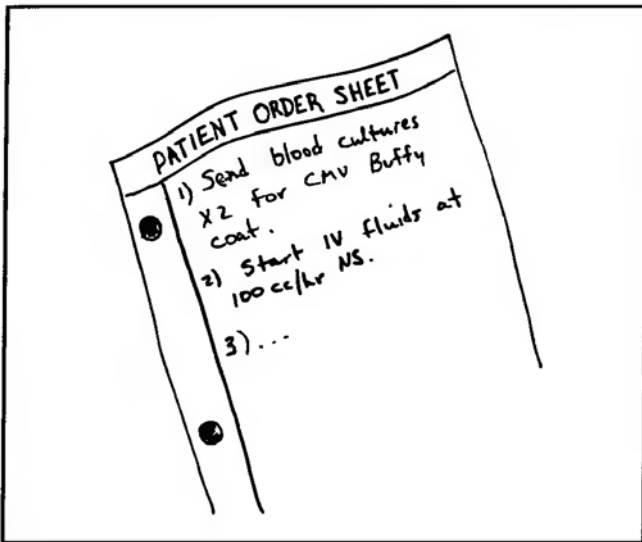 PATIENT ORDER SHEET
1) Send blood cultures
X2 for CMV Buffy
coat.
2) Start IV fluids at
100 cc/hr NS.
3)...